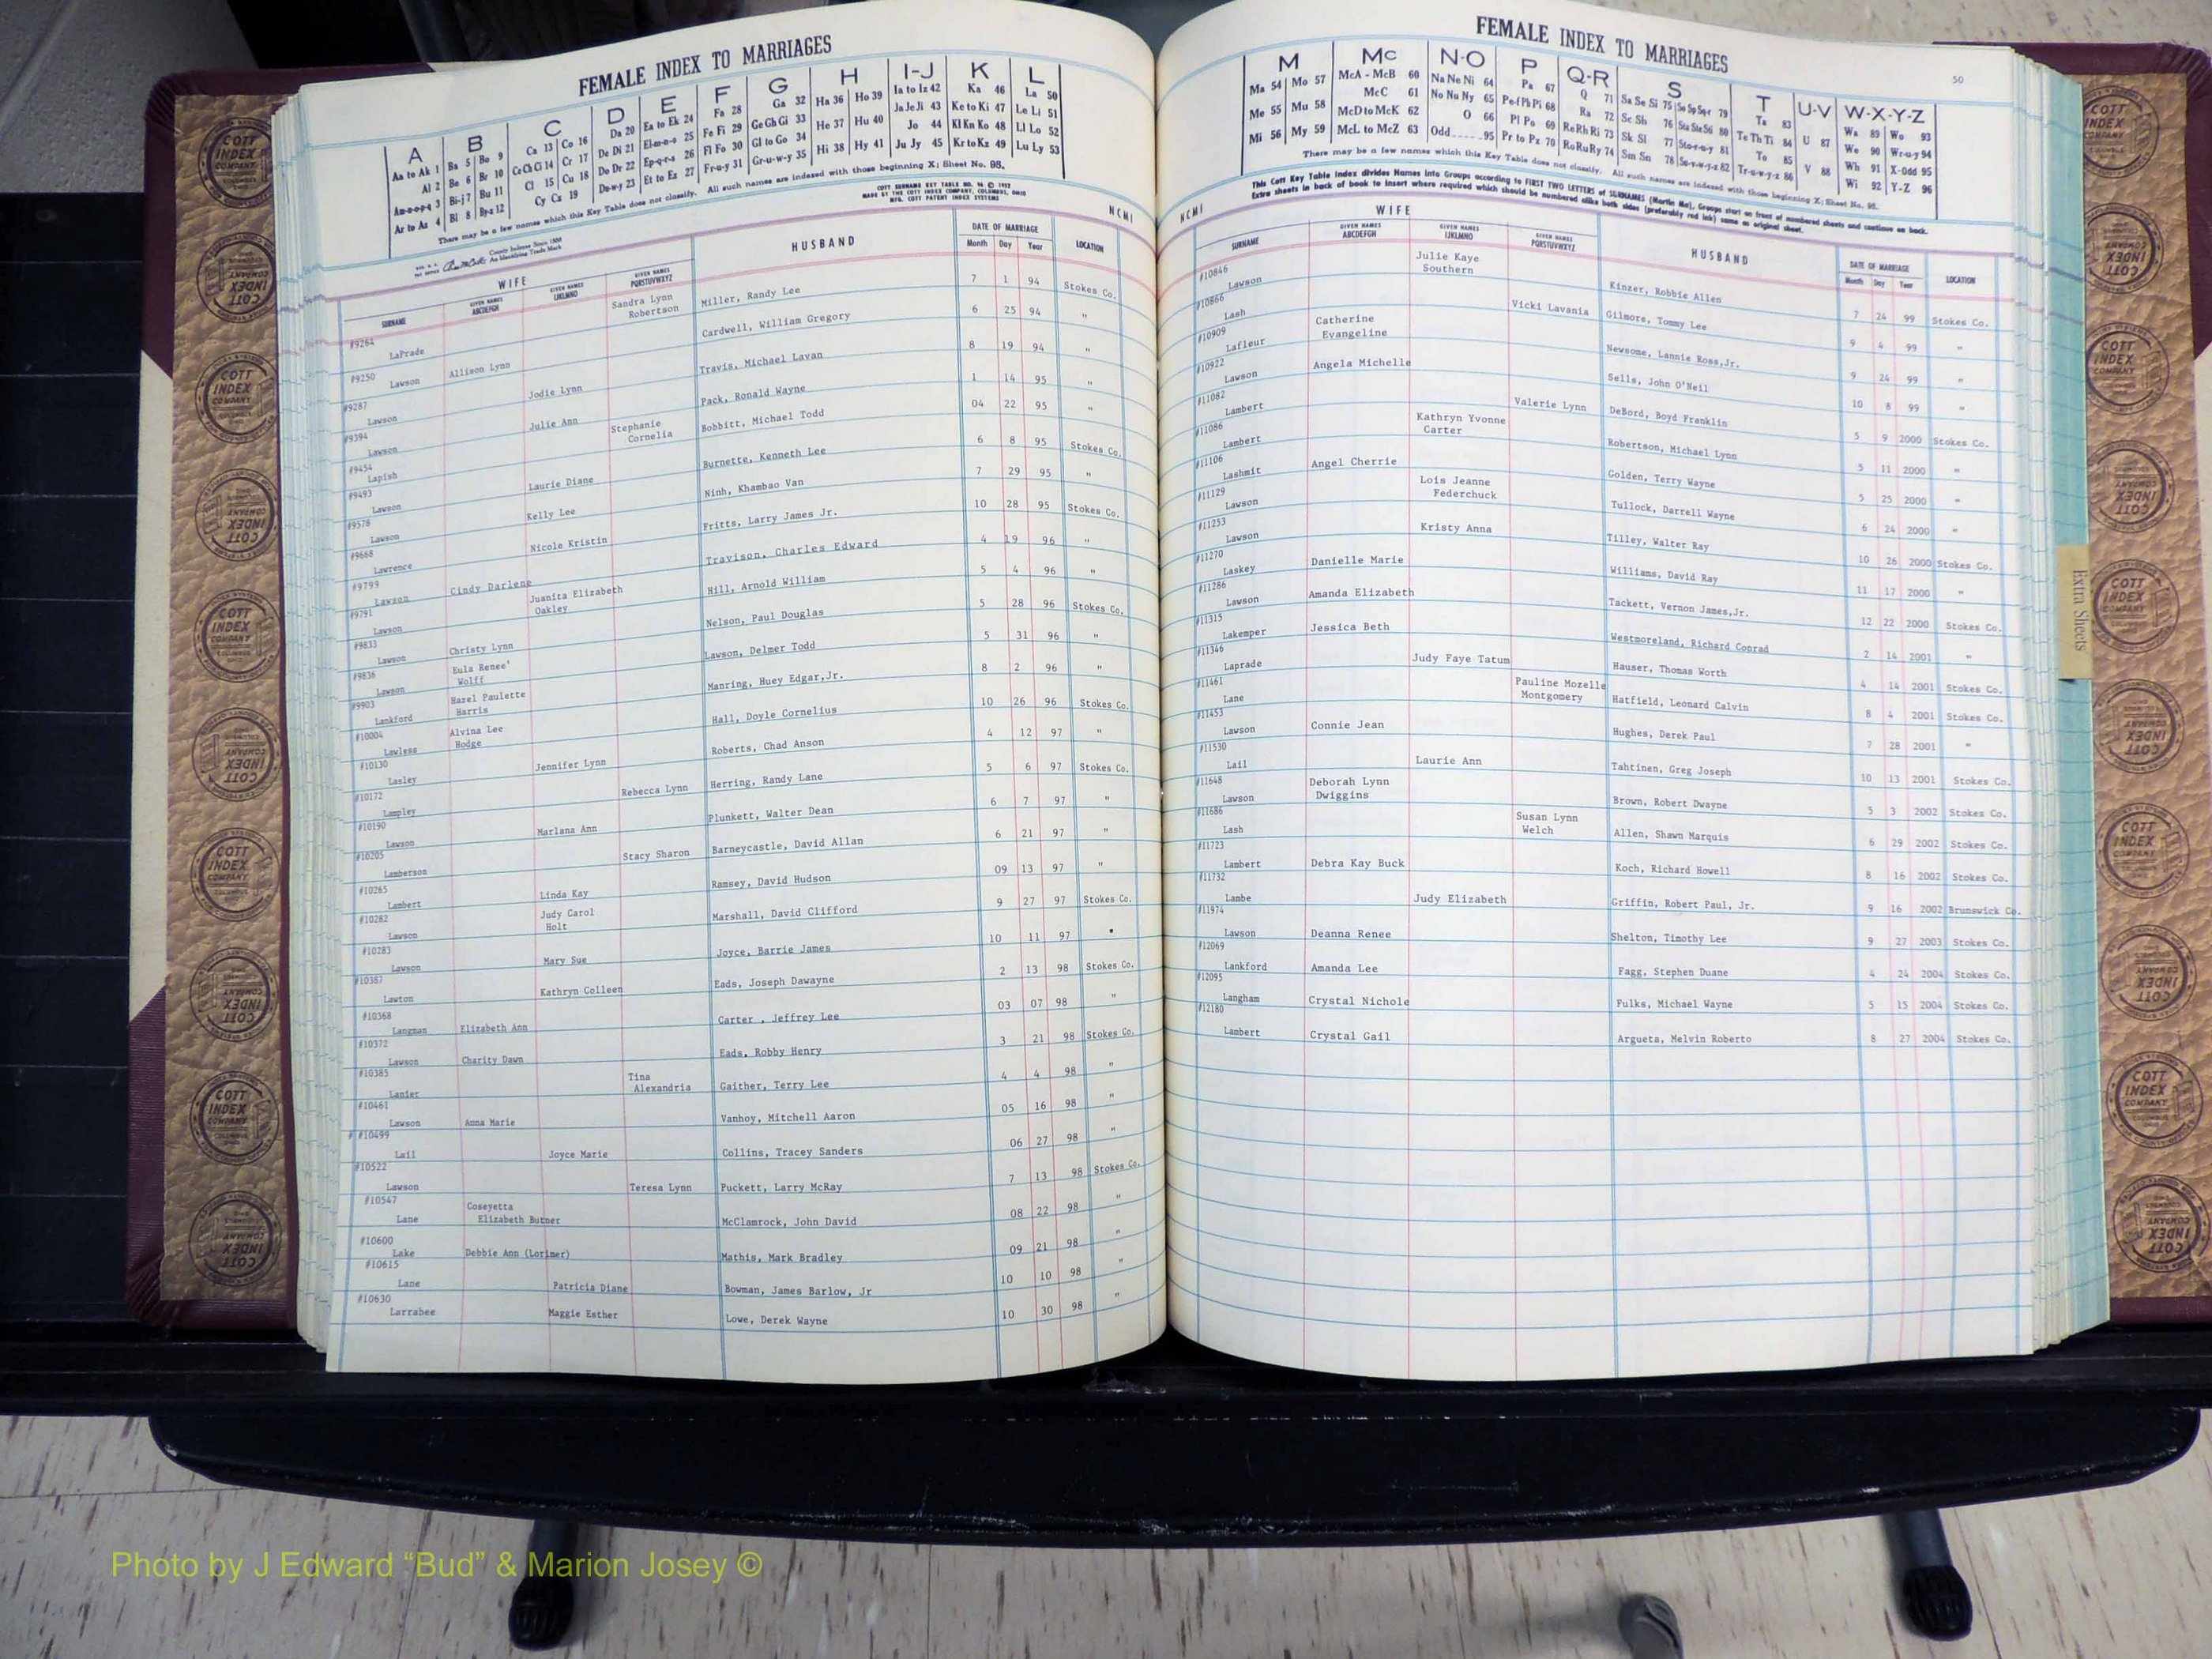 FEMALE INDEX TO MARRIAGES
A B C D E F G H I-J K L
Aa to Ak 1 Ba 5 Bo 9 Ca 13 Co 16 Da 20 Ea to Ek 24 Fa 28 Ga 32 Ha 36 Ho 39 Ia to Iz 42 Ka 46 La 50
Al 2 Be 6 Br 10 Ce Ch Ci 14 Cr 17 De Di 21 El-m-n-o 25 Fe Fi 29 Ge Gh Gi 33 He 37 Hu 40 Ja Je Ji 43 Ke to Ki 47 Le Li 51
Am-n-o-p-q 3 Bi-j 7 Bu 11 Cl 15 Cu 18 Do Dr 22 Ep-q-r-s 26 Fl Fo 30 Gl to Go 34 Hi 38 Hy 41 Jo 44 Kl Kn Ko 48 Ll Lo 52
Ar to Az 4 Bl 8 By-z 12 Cy Cz 19 Du-w-y 23 Et to Ez 27 Fr-u-y 31 Gr-u-w-y 35 Ju Jy 45 Kr to Kz 49 Lu Ly 53
There may be a few names which this Key Table does not classify. All such names are indexed with those beginning X; Sheet No. 95.
COTT SURNAME KEY TABLE NO. 96 © 1952
MADE BY THE COTT INDEX COMPANY, COLUMBUS, OHIO
MFG. COTT PATENT INDEX SYSTEMS
County Indexes Since 1888
An Identifying Trade Mark
NCMI
WIFE HUSBAND DATE OF MARRIAGE LOCATION
SURNAME GIVEN NAMES ABCDEFGH GIVEN NAMES IJKLMNO GIVEN NAMES PQRSTUVWXYZ Month Day Year
#9264 LaPrade Sandra Lynn Robertson Miller, Randy Lee 7 1 94 Stokes Co.
#9250 Lawson Allison Lynn Cardwell, William Gregory 6 25 94 "
#9287 Lawson Jodie Lynn Travis, Michael Lavan 8 19 94 "
#9394 Lawson Julie Ann Pack, Ronald Wayne 1 14 95 "
#9454 Lapish Stephanie Cornelia Bobbitt, Michael Todd 04 22 95 "
#9493 Lawson Laurie Diane Burnette, Kenneth Lee 6 8 95 Stokes Co.
#9578 Lawson Kelly Lee Ninh, Khambao Van 7 29 95 "
#9668 Lawrence Nicole Kristin Fritts, Larry James Jr. 10 28 95 Stokes Co.
#9799 Lawson Cindy Darlene Travison, Charles Edward 4 19 96 "
#9791 Lawson Juanita Elizabeth Oakley Hill, Arnold William 5 4 96 "
#9833 Lawson Christy Lynn Nelson, Paul Douglas 5 28 96 Stokes Co.
#9836 Lawson Eula Renee' Wolff Lawson, Delmer Todd 5 31 96 "
#9903 Lankford Hazel Paulette Harris Manring, Huey Edgar, Jr. 8 2 96 "
#10004 Lawless Alvina Lee Hodge Hall, Doyle Cornelius 10 26 96 Stokes Co.
#10130 Lasley Jennifer Lynn Roberts, Chad Anson 4 12 97 "
#10172 Lampley Rebecca Lynn Herring, Randy Lane 5 6 97 Stokes Co.
#10190 Lawson Marlana Ann Plunkett, Walter Dean 6 7 97 "
#10205 Lamberson Stacy Sharon Barneycastle, David Allan 6 21 97 "
#10265 Lambert Linda Kay Ramsey, David Hudson 09 13 97 "
#10282 Lawson Judy Carol Holt Marshall, David Clifford 9 27 97 Stokes Co.
#10283 Lawson Mary Sue Joyce, Barrie James 10 11 97 "
#10367 Lawton Kathryn Colleen Eads, Joseph Dawayne 2 13 98 Stokes Co.
#10368 Langman Elizabeth Ann Carter , Jeffrey Lee 03 07 98 "
#10372 Lawson Charity Dawn Eads, Robby Henry 3 21 98 Stokes Co.
#10385 Lanier Tina Alexandria Gaither, Terry Lee 4 4 98 "
#10461 Lawson Anna Marie Vanhoy, Mitchell Aaron 05 16 98 "
#10499 Lail Joyce Marie Collins, Tracey Sanders 06 27 98 "
#10522 Lawson Teresa Lynn Puckett, Larry McRay 7 13 98 Stokes Co.
#10547 Lane Coseyetta Elizabeth Butner McClamrock, John David 08 22 98 "
#10600 Lake Debbie Ann (Lorimer) Mathis, Mark Bradley 09 21 98 "
#10615 Lane Patricia Diane Bowman, James Barlow, Jr 10 10 98 "
#10630 Larrabee Maggie Esther Lowe, Derek Wayne 10 30 98 "
FEMALE INDEX TO MARRIAGES
50
M Mc N-O P Q-R S T U-V W-X-Y-Z
Ma 54 Mo 57 McA - McB 60 Na Ne Ni 64 Pa 67 Q 71 Sa Se Si 75 So Sp Sq-r 79 Ta 83 U 87 Wa 89 Wo 93
Me 55 Mu 58 McC 61 No Nu Ny 65 Pe-f Ph Pi 68 Ra 72 Sc Sh 76 Sta Ste Sti 80 Te Th Ti 84 V 88 We 90 Wr-u-y 94
Mi 56 My 59 McD to McK 62 O 66 Pl Po 69 Re Rh Ri 73 Sk Sl 77 Sto-r-u-y 81 To 85 Wh 91 X-Odd 95
McL to McZ 63 Odd 95 Pr to Pz 70 Ro Ru Ry 74 Sm Sn 78 Su-v-w-y-z 82 Tr-u-w-y-z 86 Wi 92 Y-Z 96
There may be a few names which this Key Table does not classify. All such names are indexed with those beginning X; Sheet No. 95.
This Cott Key Table Index divides Names into Groups according to FIRST TWO LETTERS of SURNAMES (Martin Ma), Groups start on front of numbered sheets and continue on back.
Extra sheets in back of book to insert where required which should be numbered alike both sides (preferably red ink) same as original sheet.
NCMI
WIFE HUSBAND DATE OF MARRIAGE LOCATION
SURNAME GIVEN NAMES ABCDEFGH GIVEN NAMES IJKLMNO GIVEN NAMES PQRSTUVWXYZ Month Day Year
#10846 Lawson Julie Kaye Southern Kinzer, Robbie Allen 7 24 99 Stokes Co.
#10866 Lash Vicki Lavania Gilmore, Tommy Lee 9 4 99 "
#10909 Lafleur Catherine Evangeline Newsome, Lannie Ross, Jr. 9 24 99 "
#10922 Lawson Angela Michelle Sells, John O'Neil 10 8 99 "
#11082 Lambert Valerie Lynn DeBord, Boyd Franklin 5 9 2000 Stokes Co.
#11086 Lambert Kathryn Yvonne Carter Robertson, Michael Lynn 5 11 2000 "
#11106 Lashmit Angel Cherrie Golden, Terry Wayne 5 25 2000 "
#11129 Lawson Lois Jeanne Federchuck Tullock, Darrell Wayne 6 24 2000 "
#11253 Lawson Kristy Anna Tilley, Walter Ray 10 26 2000 Stokes Co.
#11270 Laskey Danielle Marie Williams, David Ray 11 17 2000 "
#11286 Lawson Amanda Elizabeth Tackett, Vernon James, Jr. 12 22 2000 Stokes Co.
#11315 Lakemper Jessica Beth Westmoreland, Richard Conrad 2 14 2001 "
#11346 Laprade Judy Faye Tatum Hauser, Thomas Worth 4 14 2001 Stokes Co.
#11461 Lane Pauline Mozelle Montgomery Hatfield, Leonard Calvin 8 4 2001 Stokes Co.
#11453 Lawson Connie Jean Hughes, Derek Paul 7 28 2001 "
#11530 Lail Laurie Ann Tahtinen, Greg Joseph 10 13 2001 Stokes Co.
#11648 Lawson Deborah Lynn Dwiggins Brown, Robert Dwayne 5 3 2002 Stokes Co.
#11686 Lash Susan Lynn Welch Allen, Shawn Marquis 6 29 2002 Stokes Co.
#11723 Lambert Debra Kay Buck Koch, Richard Howell 8 16 2002 Stokes Co.
#11732 Lambe Judy Elizabeth Griffin, Robert Paul, Jr. 9 16 2002 Brunswick Co.
#11974 Lawson Deanna Renee Shelton, Timothy Lee 9 27 2003 Stokes Co.
#12069 Lankford Amanda Lee Fagg, Stephen Duane 4 24 2004 Stokes Co.
#12095 Langham Crystal Nichole Fulks, Michael Wayne 5 15 2004 Stokes Co.
#12180 Lambert Crystal Gail Argueta, Melvin Roberto 8 27 2004 Stokes Co.
Extra Sheets
COTT INDEX COMPANY
Photo by J Edward “Bud” & Marion Josey ©